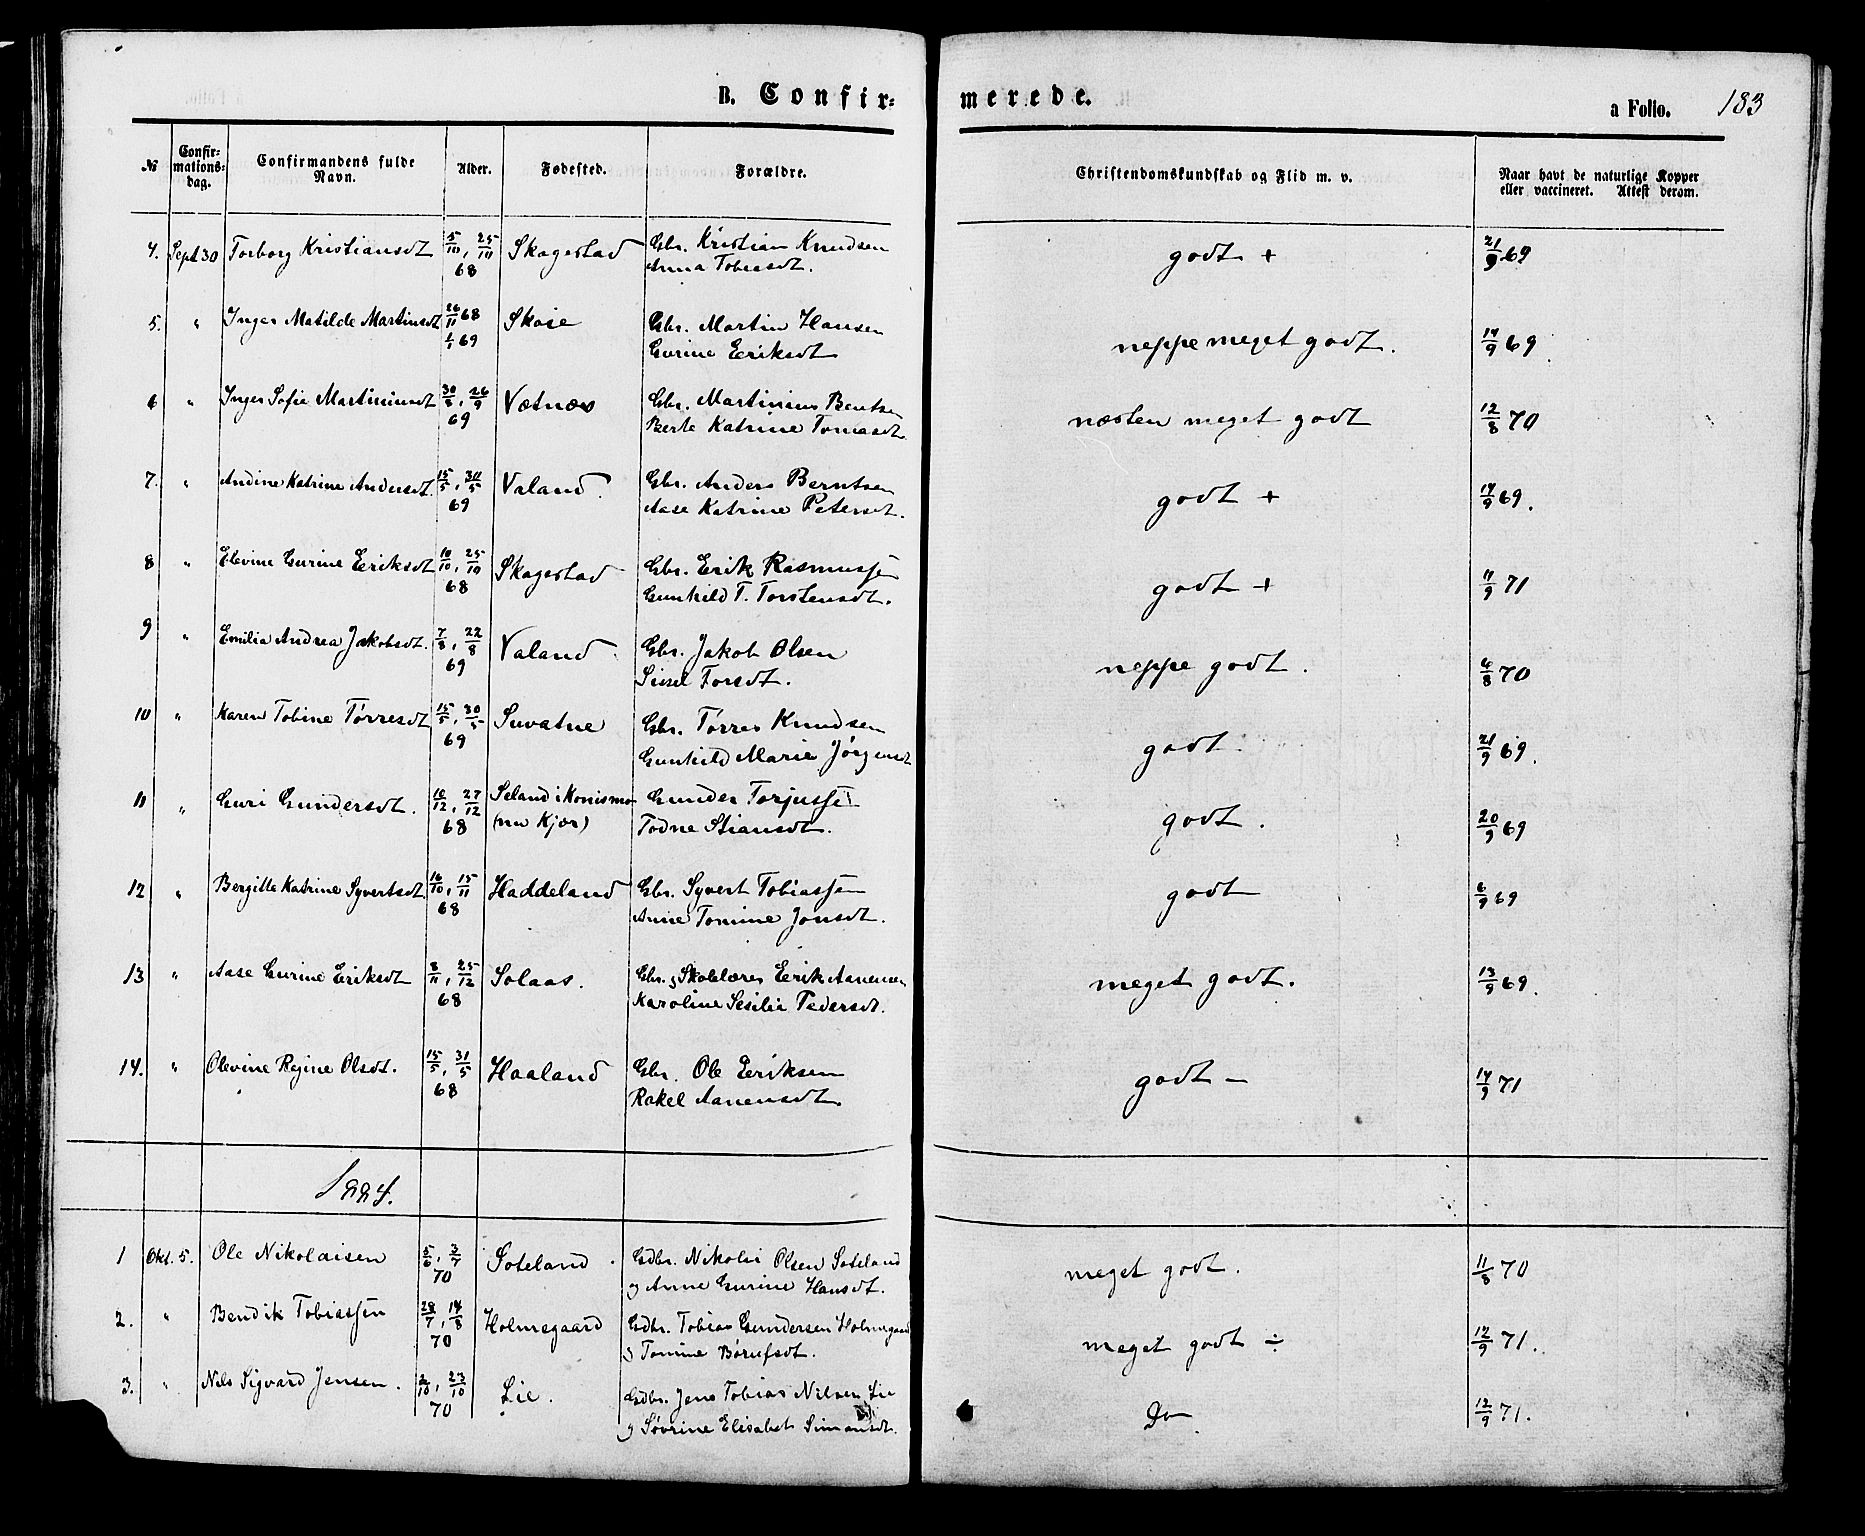 B. Confirmerede.
a Folio. 183
№ Confirmationsdag. Confirmandens fulde Navn. Alder. Fødested. Forældre. Christendomskundskab og Flid m. v. Naar havt de naturlige Kopper eller vaccineret. Attest derom.
4. Sept 30 Torborg Kristiansdt 5/10, 25/10 68 Skagestad Gbr. Kristian Knudsen Anna Tobiasdt. godt + 21/9 69
5. " Inger Matilde Martinsdt 26/11 68 1/1 69 Skoie Gbr. Martin Hansen Gurine Eeriksdt neppe meget godt. 14/9 69
6 " Inger Sofie Martiniusdt 30/8, 26/9 69 Vætnæs Gbr. Martinius Bentsen Berte Katrine Tomasdt. næsten meget godt 12/8 70
7. " Andine Katrine Andersdt. 15/5, 31/5 69 Valand. Gbr. Anders Berntsen Aase Katrine Petersdt. godt + 14/9 69.
8 " Elevine Gurine Eeriksdt 10/10, 25/10 68 Skagestad Gbr. Eerik Rasmussen Gunhild T. Torstensdt. godt + 11/9 71
9 " Emilia Andrea Jakobsdt. 7/8, 22/8 69 Valand Gbr. Jakob Olsen Sissel Torsdt. neppe godt. 6/8 70
10 " Karen Tobine Tørresdt 15/5, 30/5 69 Suvatne Gbr. Tørres Knudsen Gunhild Marie Jørgensdt godt. 21/9 69.
11 " Guri Gundersdt. 16/12, 27/12 68 Seland i Konismo (nu Kjær) Gunder Torjussen Todne Stiansdt. godt. 20/9 69
12 " Bergitte Katrine Syvertsdt. 16/10, 15/11 68 Haddeland Gbr. Syvert Tobiassen Anne Tomine Jonsdt. godt 6/9 69
13 " Aase Gurine Eeriksdt 8/11, 25/12 68 Solaas. Gbr. og Skolelærer Eerik Aanensen Karoline Sesilie Pedersdt. meget godt. 13/9 69.
14. " Olevine Regine Olsdt. 15/5, 31/5 68 Haaland Gbr. Ole Eeriksen Rakel Aanensdt. godt – 14/9 71
1884.
1 Okt. 5. Ole Nikolaisen 5/6, 3/7 70 Soteland. Gdbr. Nikolai Olsen Soteland og Anne Gurine Hansdt. meget godt. 11/8 70
2. " Bendik Tobiassen 28/7, 14/8 70 Holmegaard Gdbr. Tobias Gundersen Holmegaard og Tomine Børufsdt. meget godt ÷ 12/9 71.
3. " Nils Sigvard Jensen. 2/10, 23/10 70 Lie. Gdbr. Jens Tobias Nilsen Lie og Søvrine Elisabet Simonsdt. Do 12/9 71.